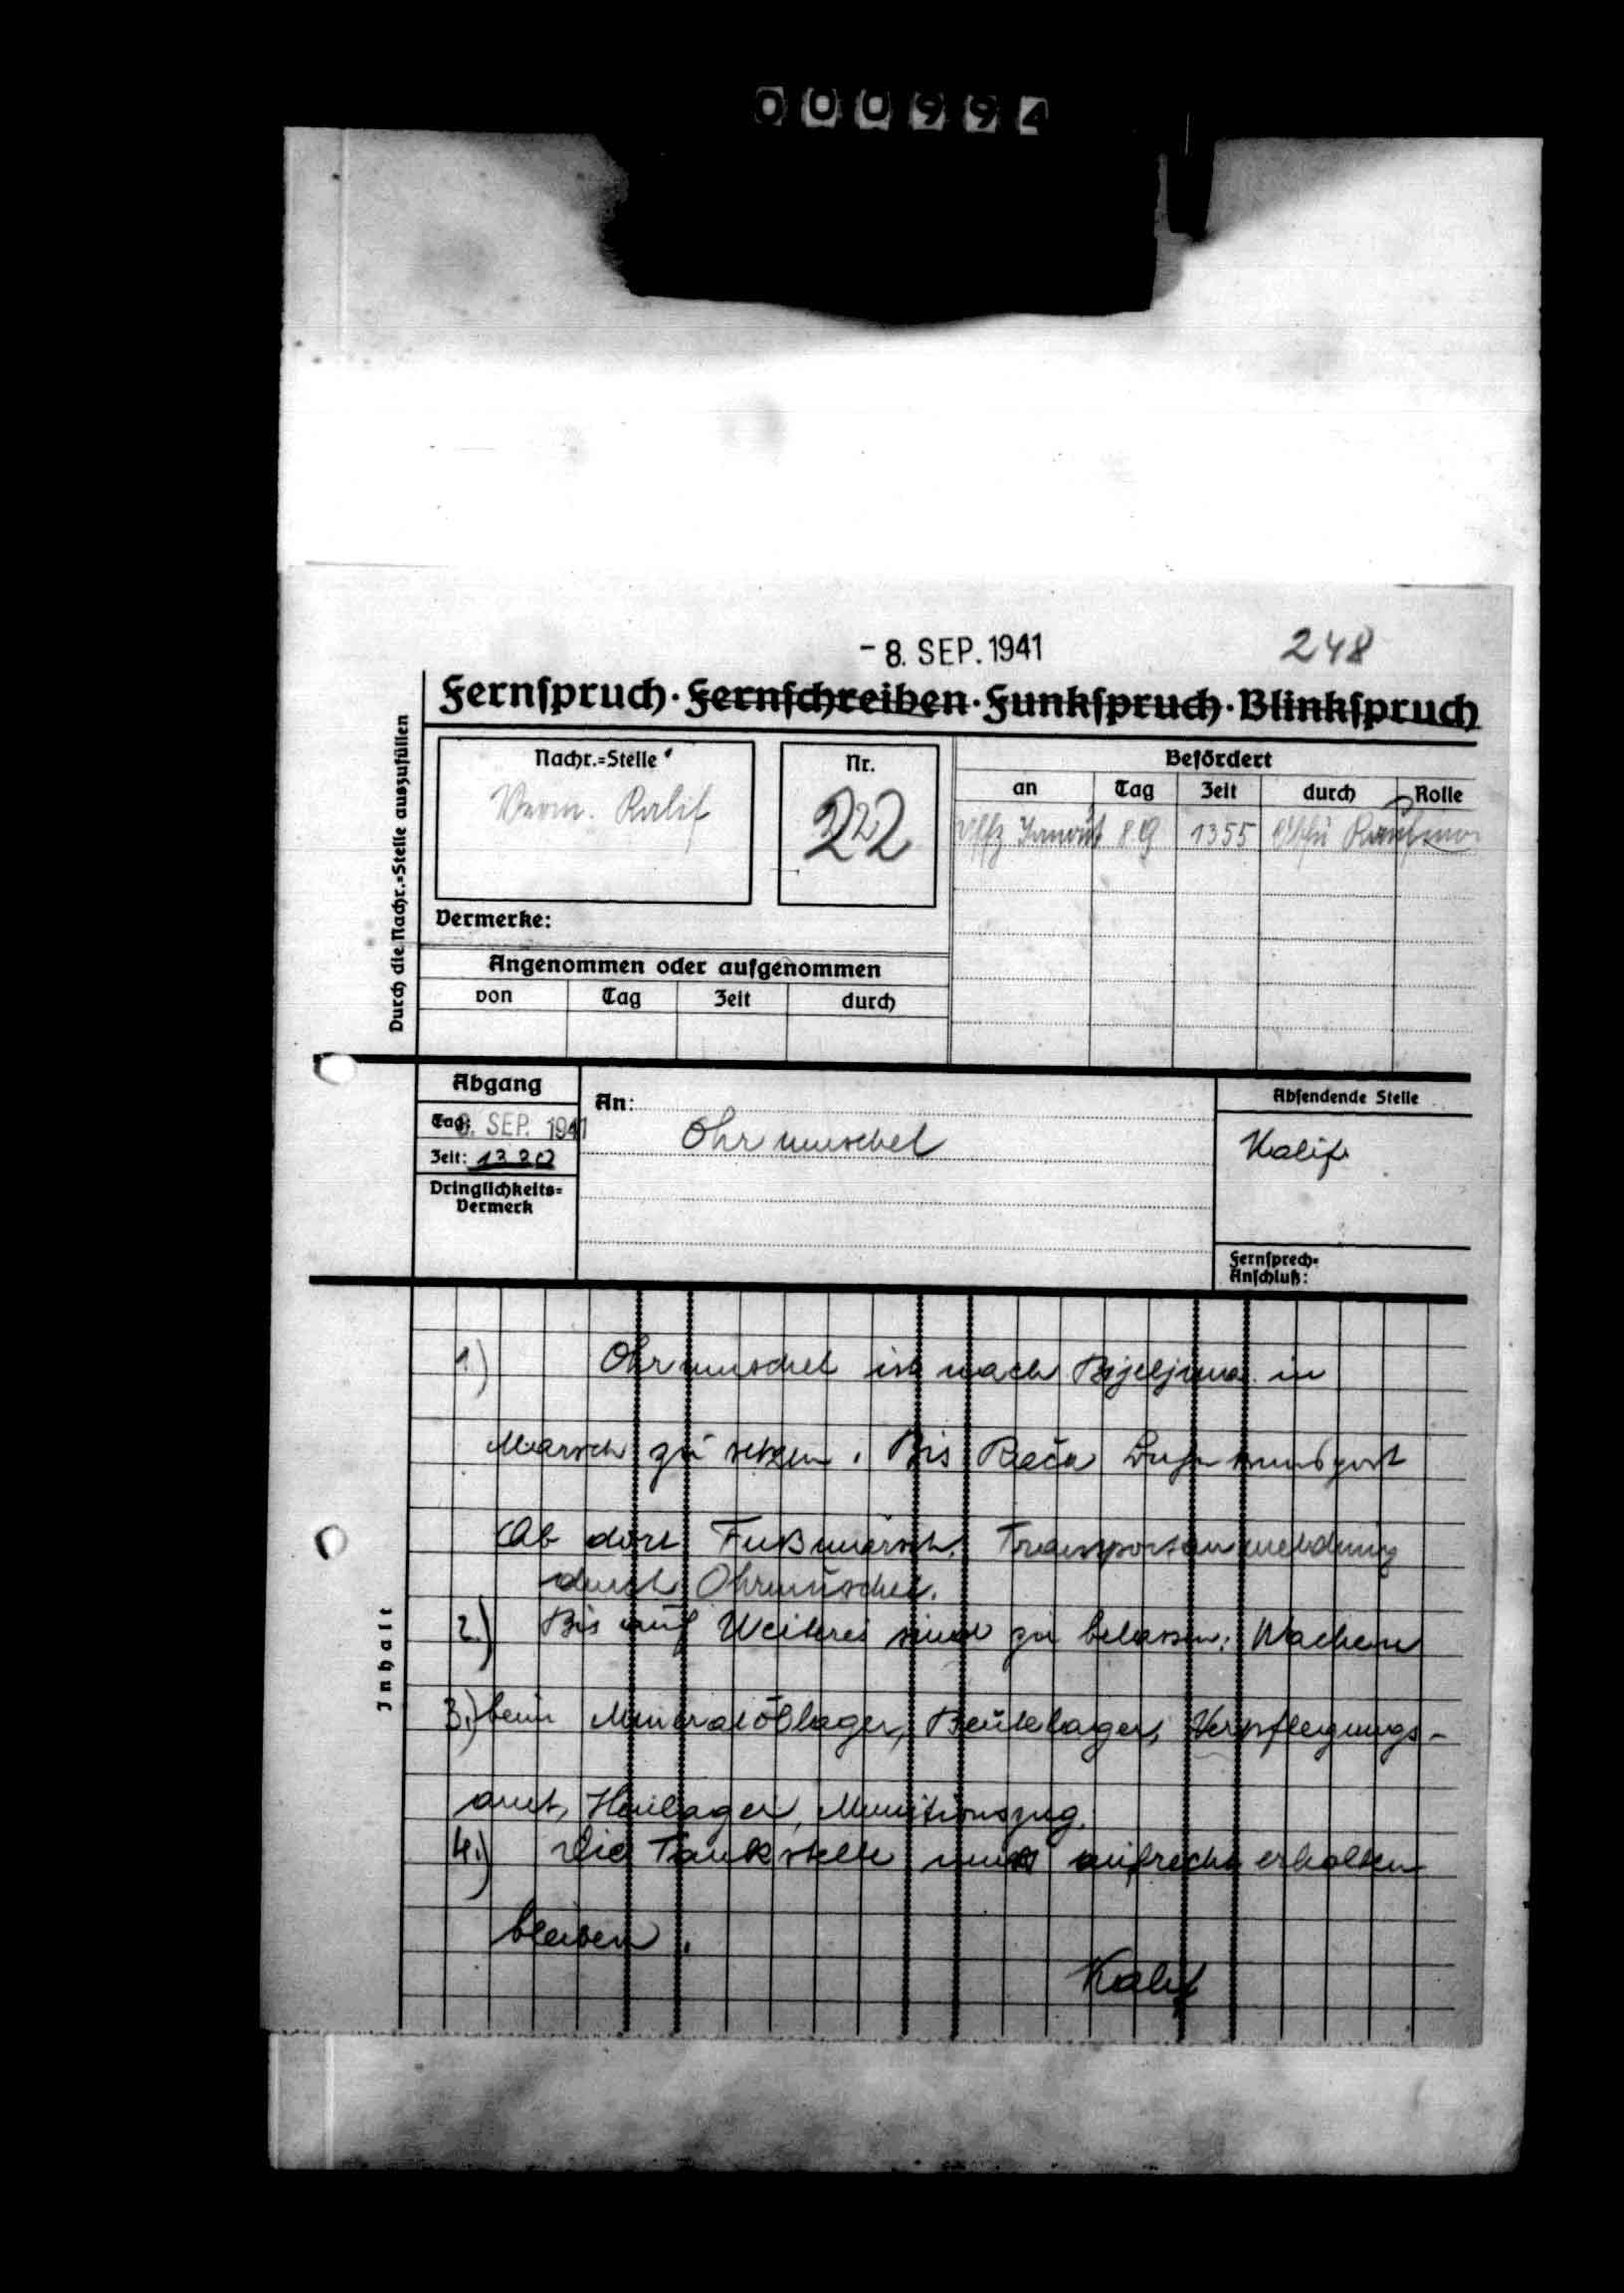 000994
- 8. SEP. 1941
248
Fernspruch · Fernschreiben · Funkspruch · Blinkspruch
Durch die Nachr.=Stelle auszufüllen
Nachr.=Stelle
Verm. Kalif
Nr.
22
Befördert
an Tag Zeit durch Rolle
Uffz 8.9 1355
Vermerke:
Angenommen oder aufgenommen
von Tag Zeit durch
Abgang
Tag: 8. SEP. 1941
Zeit: 1320
Dringlichkeits=
Vermerk
An:
Ohrmuschel
Absendende Stelle
Kalif
Fernsprech=
Anschluß:
Inhalt
1.) Ohrmuschel ist nach Bijeljina in
Marsch zu setzen. Bis Rača
Ab dort Fußmarsch. Transportanmeldung
durch Ohrmuschel.
2.) Bis auf Weiteres sind zu belassen: Wachen
3.) beim Mineralöllager, Beutelager, Verpflegungs-
amt, Heulager, Munitionszug.
4.) Die Tankstelle muß aufrecht erhalten
bleiben.
Kalif